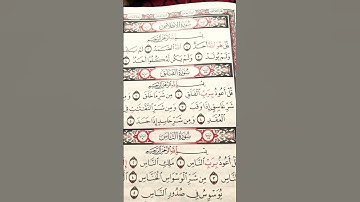 سُورَةُ الإِخْلَاصِ
بِسْمِ اللَّهِ الرَّحْمَٰنِ الرَّحِيمِ
قُلْ هُوَ اللَّهُ أَحَدٌ ١ اللَّهُ الصَّمَدُ ٢
وَلَمْ يُولَدْ ٣ وَلَمْ يَكُن لَّهُ كُفُوًا أَحَدٌ ٤
سُورَةُ الفَلَقِ
بِسْمِ اللَّهِ الرَّحْمَٰنِ الرَّحِيمِ
قُلْ أَعُوذُ بِرَبِّ الْفَلَقِ ١ مِن شَرِّ مَا خَلَقَ ٢ وَ
شَرِّ غَاسِقٍ إِذَا وَقَبَ ٣ وَمِن شَرِّ النَّفَّاثَاتِ فِي
الْعُقَدِ ٤ وَمِن شَرِّ حَاسِدٍ إِذَا حَسَدَ ٥
سُورَةُ النَّاسِ
بِسْمِ اللَّهِ الرَّحْمَٰنِ الرَّحِيمِ
أَعُوذُ بِرَبِّ النَّاسِ ١ مَلِكِ النَّاسِ ٢
مِن شَرِّ الْوَسْوَاسِ الْخَنَّاسِ ٤
يُوَسْوِسُ فِي صُدُورِ النَّاسِ ٥